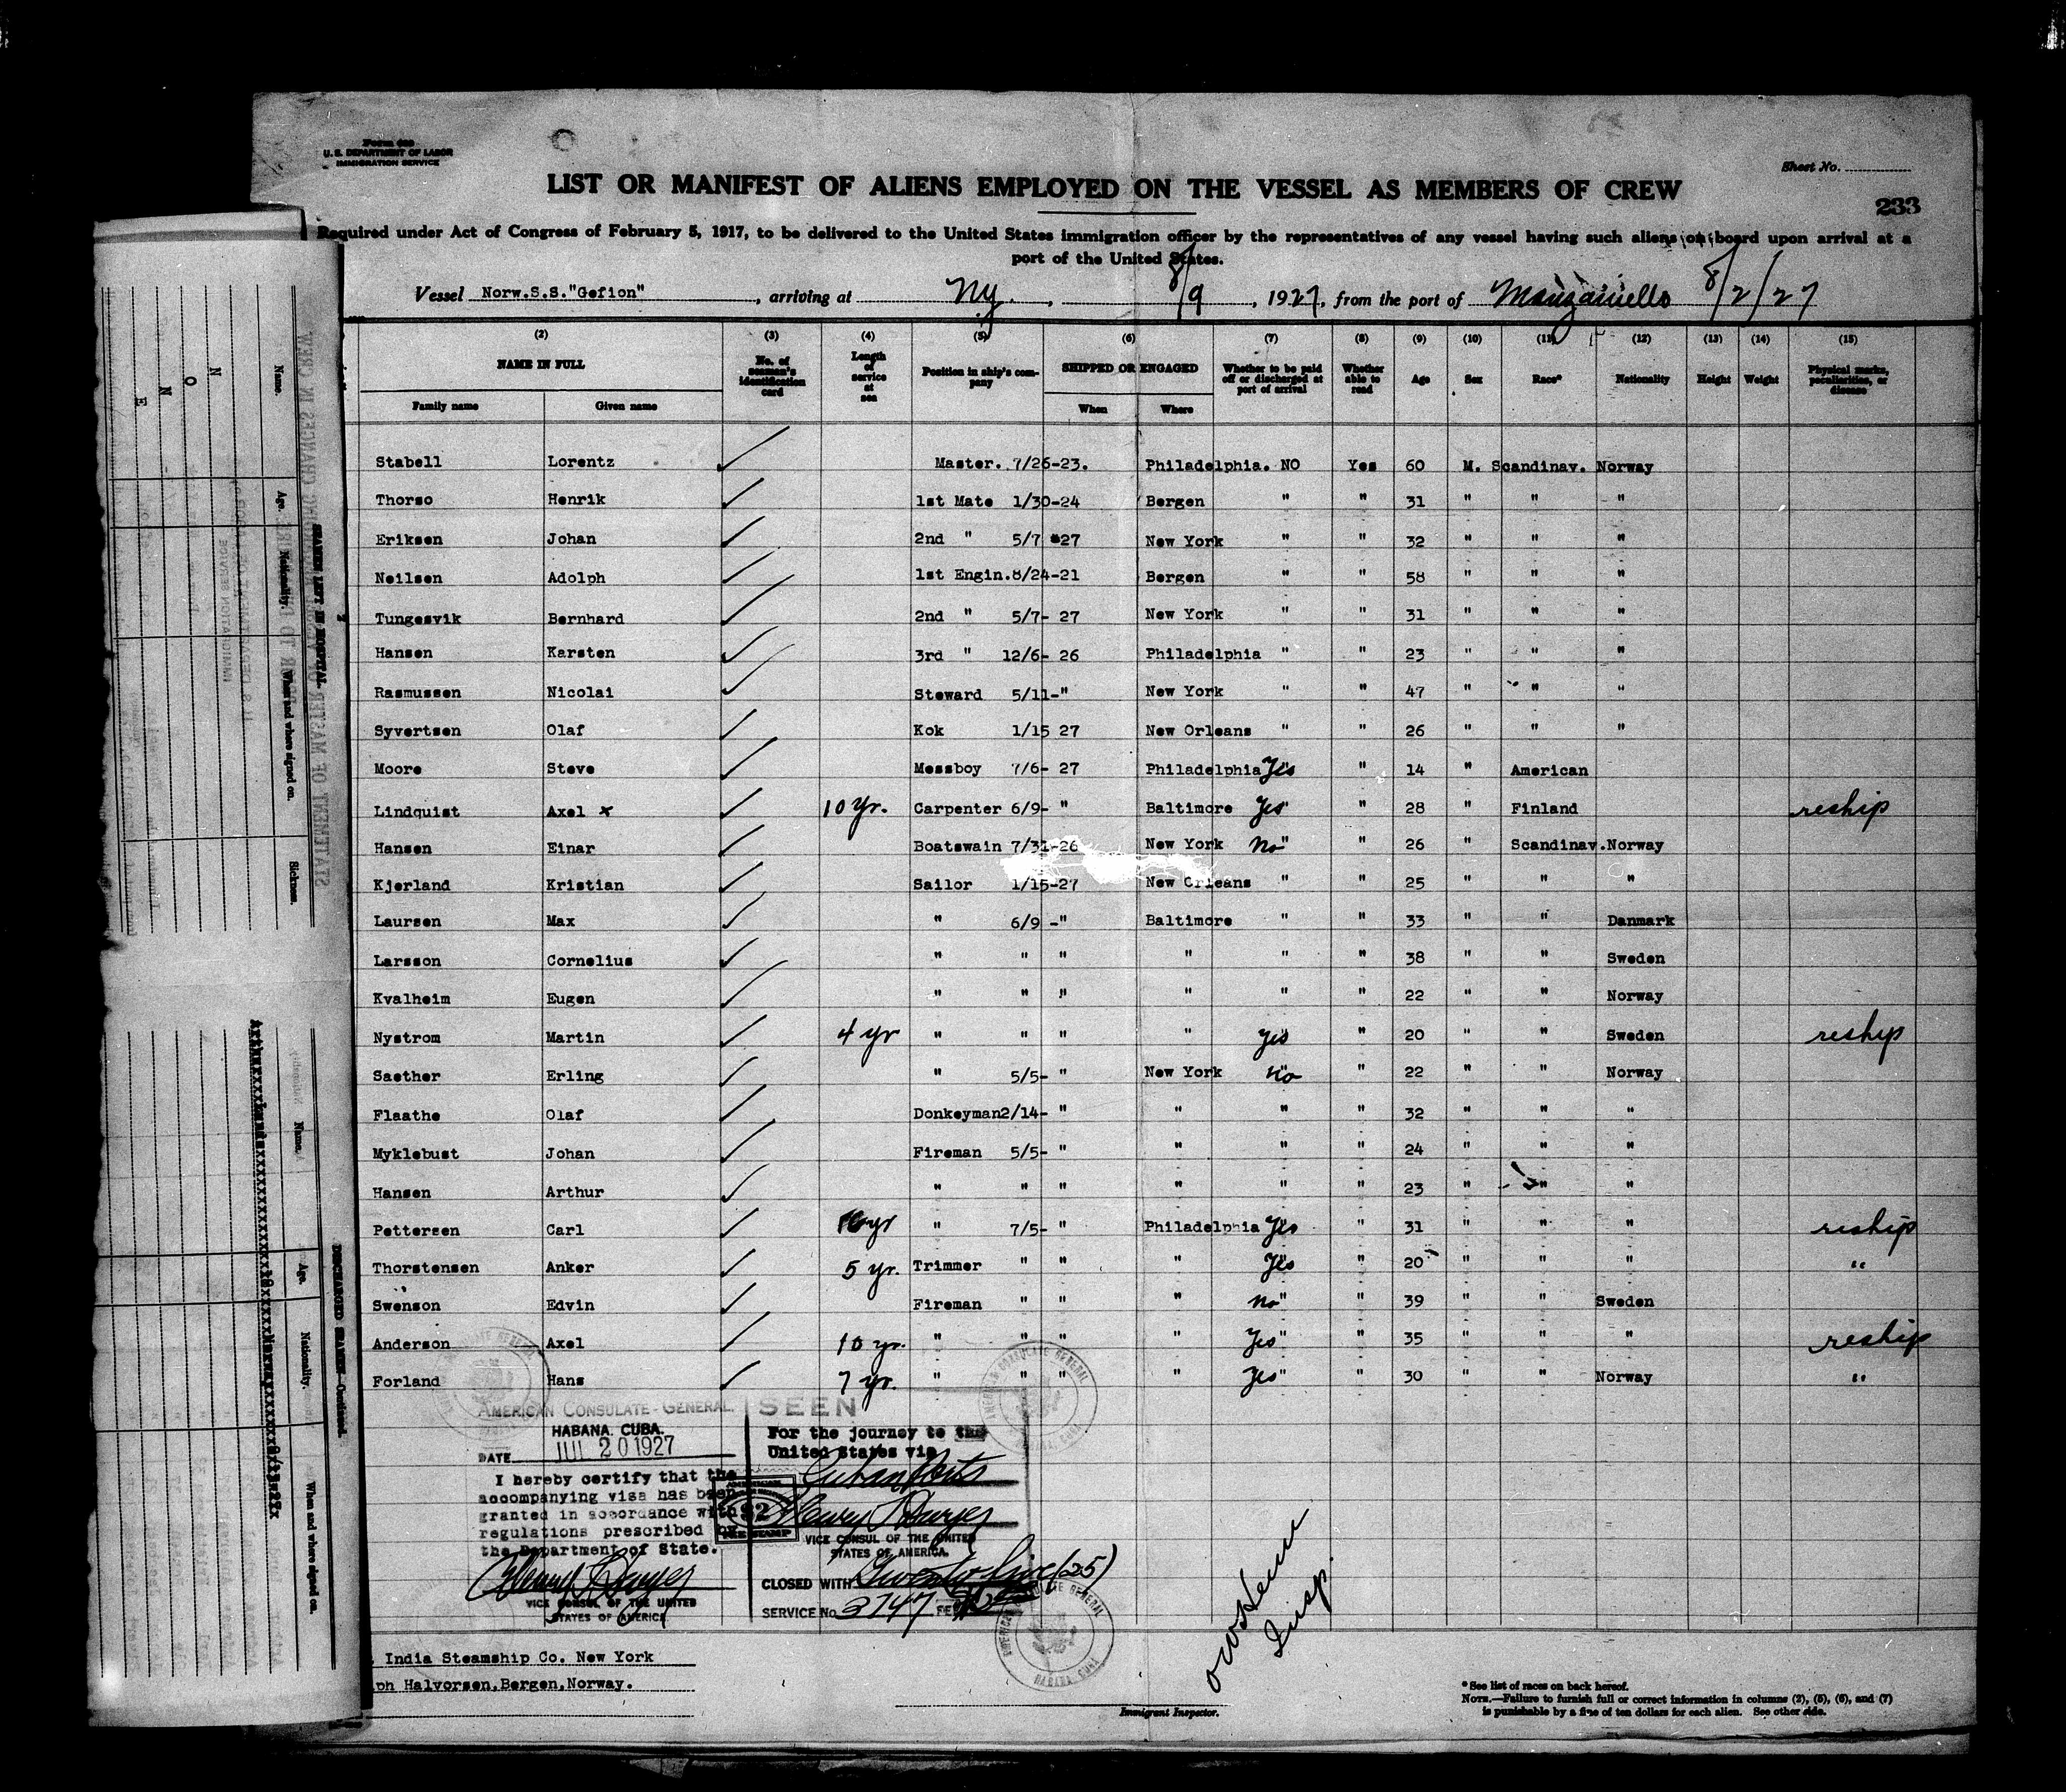 Form 689
U. S. DEPARTMENT OF LABOR
IMMIGRATION SERVICE
Sheet No.
LIST OR MANIFEST OF ALIENS EMPLOYED ON THE VESSEL AS MEMBERS OF CREW
233
Required under Act of Congress of February 5, 1917, to be delivered to the United States immigration officer by the representatives of any vessel having such aliens on board upon arrival at a
port of the United States.
Vessel Norw.S.S."Gefion", arriving at Ny., 8/9, 1927, from the port of Manzaniello 8/2/27
(2) (3) (4) (5) (6) (7) (8) (9) (10) (11) (12) (13) (14) (15)
NAME IN FULL No. of seaman's identification card Length of service at sea Position in ship's company SHIPPED OR ENGAGED Whether to be paid off or discharged at port of arrival Whether able to read Age Sex Race* Nationality Height Weight Physical marks, peculiarities, or disease
Family name Given name When Where
Stabell Lorentz Master. 7/26-23. Philadelphia. NO Yes 60 M. Scandinav. Norway
Thorso Henrik 1st Mate 1/30-24 Bergen " " 31 " " "
Eriksen Johan 2nd " 5/7 -27 New York " " 32 " " "
Neilsen Adolph 1st Engin. 8/24-21 Bergen " " 58 " " "
Tungesvik Bernhard 2nd " 5/7- 27 New York " " 31 " " "
Hansen Karsten 3rd " 12/6- 26 Philadelphia " " 23 " " "
Rasmussen Nicolai Steward 5/11-" New York " " 47 " " "
Syvertsen Olaf Kok 1/15 27 New Orleans " " 26 " " "
Moore Steve Messboy 7/6- 27 Philadelphia Yes " 14 " American
Lindquist Axel x 10 Yr. Carpenter 6/9- " Baltimore Yes " 28 " Finland reship
Hansen Einar Boatswain 7/31-26 New York No " 26 " Scandinav. Norway
Kjerland Kristian Sailor 1/15-27 New Orleans " " 25 " " "
Laursen Max " 6/9 -" Baltimore " " 33 " " Danmark
Larsson Cornelius " " " " " " 38 " " Sweden
Kvalheim Eugen " " " " " " 22 " " Norway
Nystrom Martin 4 yr " " " " Yes " 20 " " Sweden reship
Saether Erling " 5/5- " New York No " 22 " " Norway
Flaathe Olaf Donkeyman 2/14- " " " " 32 " " "
Myklebust Johan Fireman 5/5- " " " " 24 " " "
Hansen Arthur " " " " " " 23 " " "
Pettersen Carl yr " 7/5- " Philadelphia Yes " 31 " " " reship
Thorstensen Anker 5 yr. Trimmer " " " Yes " 20 " " " "
Swenson Edvin Fireman " " " No " 39 " " Sweden
Anderson Axel 10 yr. " " " " Yes " 35 " " " reship
Forland Hans 7 yr. " " " " Yes " 30 " " Norway "
AMERICAN CONSULATE-GENERAL.
HABANA. CUBA.
DATE JUL 20 1927
I hereby certify that the
accompanying visa has been
granted in accordance with
regulations prescribed by
the Department of State.
Henry T Dwyer
VICE CONSUL OF THE UNITED
STATES OF AMERICA
SEEN
For the journey to the
United States via
Cuban Ports
Henry T Dwyer
VICE CONSUL OF THE UNITED
STATES OF AMERICA.
CLOSED WITH Twenty five (25)
SERVICE No. 3747 FEE
$2
FEE STAMP
AMERICAN CONSULATE GENERAL
HABANA, CUBA
Insp.
India Steamship Co. New York
ph Halvorsen, Bergen, Norway.
Immigrant Inspector.
* See list of races on back hereof.
NOTE.—Failure to furnish full or correct information in columns (2), (5), (6), and (7)
is punishable by a fine of ten dollars for each alien. See other side.
STATEMENT OF MASTER
SEAMEN LEFT IN HOSPITAL
Name. Age. Nationality. When and where signed on. Sickness.
N O N E
DISCHARGED SEAMEN—Continued.
Name. Age. Nationality. When and where signed on.